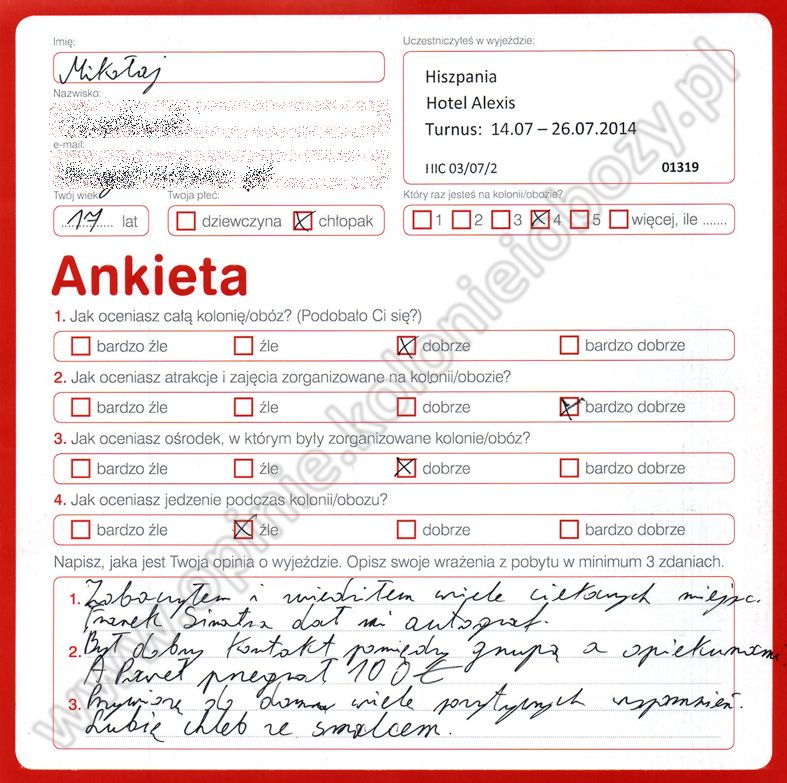 Imię:
Mikołaj
Uczestniczyłeś w wyjeździe:
Hiszpania
Hotel Alexis
Turnus: 14.07 – 26.07.2014
HIC 03/07/2 01319
Nazwisko:
e-mail:
Twój wiek:
17 lat
Twoja płeć:
dziewczyna chłopak
Który raz jesteś na kolonii/obozie?
1 2 3 4 5 więcej, ile .......
Ankieta
1. Jak oceniasz całą kolonię/obóz? (Podobało Ci się?)
bardzo źle źle dobrze bardzo dobrze
2. Jak oceniasz atrakcje i zajęcia zorganizowane na kolonii/obozie?
bardzo źle źle dobrze bardzo dobrze
3. Jak oceniasz ośrodek, w którym były zorganizowane kolonie/obóz?
bardzo źle źle dobrze bardzo dobrze
4. Jak oceniasz jedzenie podczas kolonii/obozu?
bardzo źle źle dobrze bardzo dobrze
Napisz, jaka jest Twoja opinia o wyjeździe. Opisz swoje wrażenia z pobytu w minimum 3 zdaniach.
1. Zobaczyłem i zwiedziłem wiele ciekawych miejsc.
Franek Sinatra dał mi autograf.
2. Był dobry kontakt pomiędzy grupą a opiekunami
A Paweł przegrał 100€
3. Przywiozę do domu wiele pozytywnych wspomnień.
Lubię chleb ze smalcem.
www.opinie.kolonieiobozy.pl